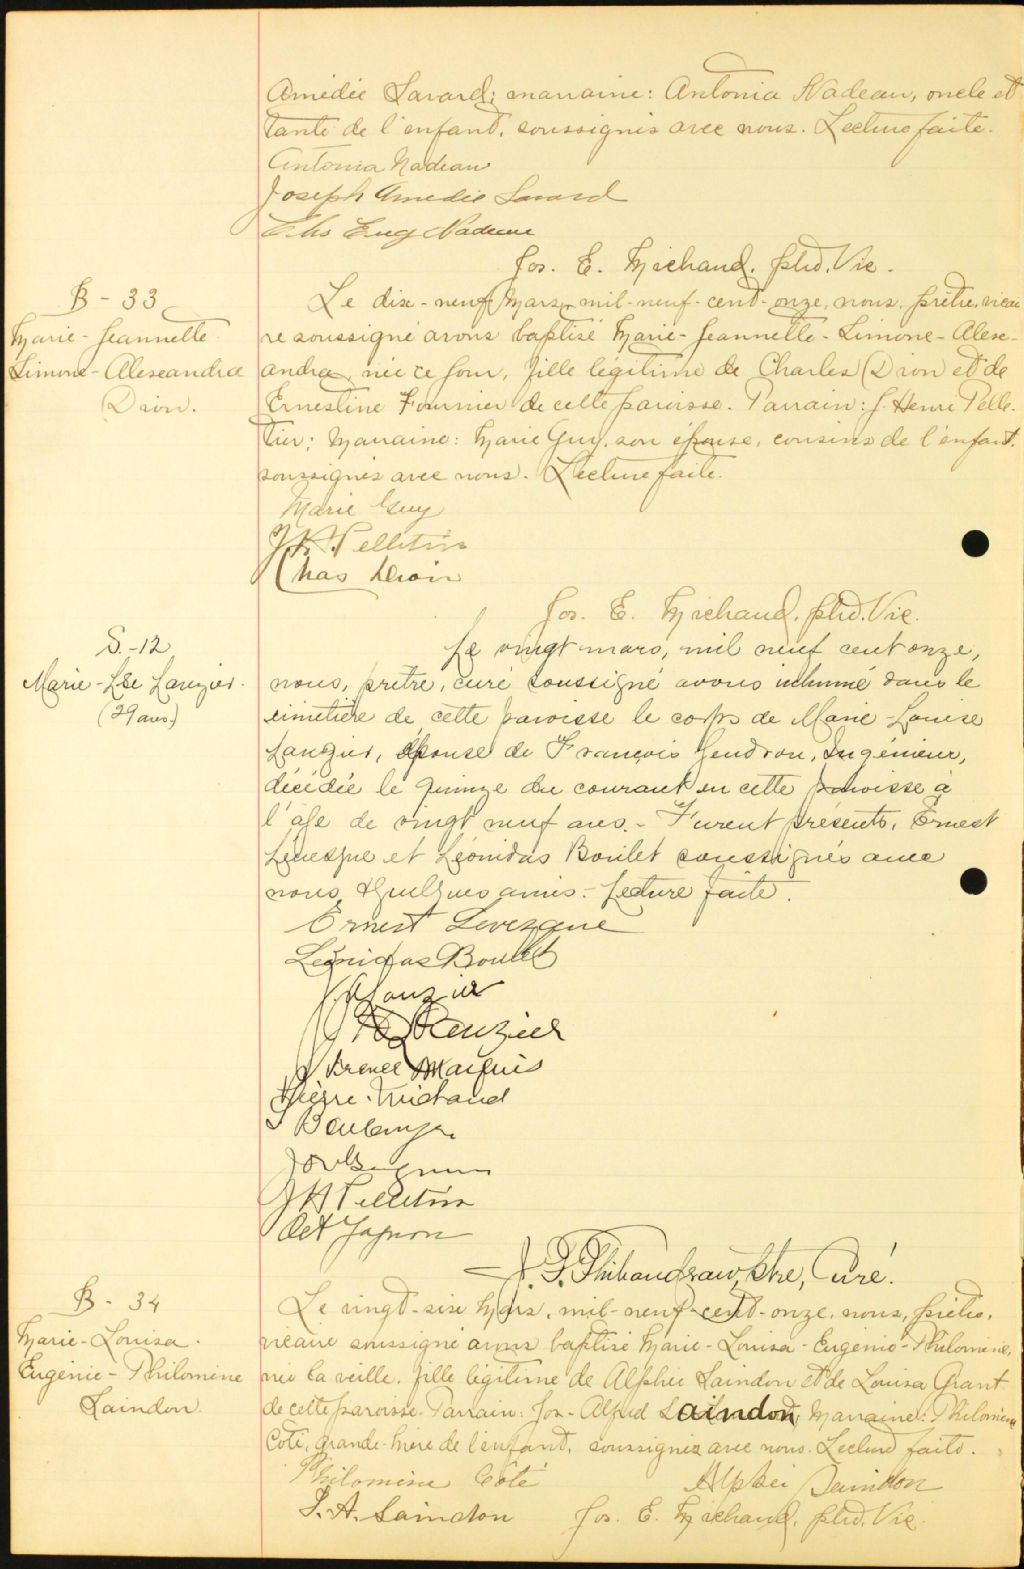 Amédée Savard; marraine: Antonia Nadeau, oncle et
tante de l'enfant, soussignés avec nous. Lecture faite.
Antonia Nadeau
Joseph Amedée Savard
Chs Eug Nadeau
Jos. E. Michaud, ptre. Vic.
B - 33
Marie-Jeannette
Simone-Alexandra
Dion.
Le dix-neuf Mars, mil-neuf-cent-onze, nous, prêtre, vicai
re soussigné avons baptisé Marie-Jeannette-Simone-Alex-
andra, née ce jour, fille légitime de Charles Dion et de
Ernestine Fournier de cette paroisse. Parrain: J. Henri Pelle-
tier; Marraine: Marie Guy, son épouse, cousins de l'enfant,
soussignés avec nous. Lecture faite.
Marie Guy
J. H. Pelletier
Chas Dion
Jos. E. Michaud, ptre. Vic.
S.-12
Marie-Lse Lauzier.
(29 ans)
Le vingt mars, mil neuf cent onze,
nous, prêtre, curé soussigné avons inhumé dans le
cimetière de cette paroisse le corps de Marie-Louise
Lauzier, épouse de François Gendron, Ingénieur,
décédée le quinze du courant en cette paroisse à
l'âge de vingt neuf ans. - Furent présents, Ernest
Lévesque et Léonidas Boulet soussignés avec
nous & quelques amis. - Lecture faite.
Ernest Levesque
Léonidas Boulet
Lauzier
Lauzier
Marquis
Pierre Michaud
Boulanger
J H Pelletier
Oct Gagnon
J. F. Thibaudeau, ptre, Curé.
B - 34
Marie-Louisa
Eugénie-Philomène
Saindon
Le vingt-six Mars, mil-neuf-cent-onze, nous, prêtre,
vicaire soussigné avons baptisé Marie-Louisa-Eugénie-Philomène,
née la veille, fille légitime de Alphée Saindon et de Louisa Grant
de cette paroisse. Parrain: Jos-Alfred Saindon, Marraine: Philomène
Côté, grande-mère de l'enfant, soussignés avec nous. Lecture faite.
Philomène Côté Alphée Saindon
J. A. Saindon Jos. E. Michaud, ptre. Vic.